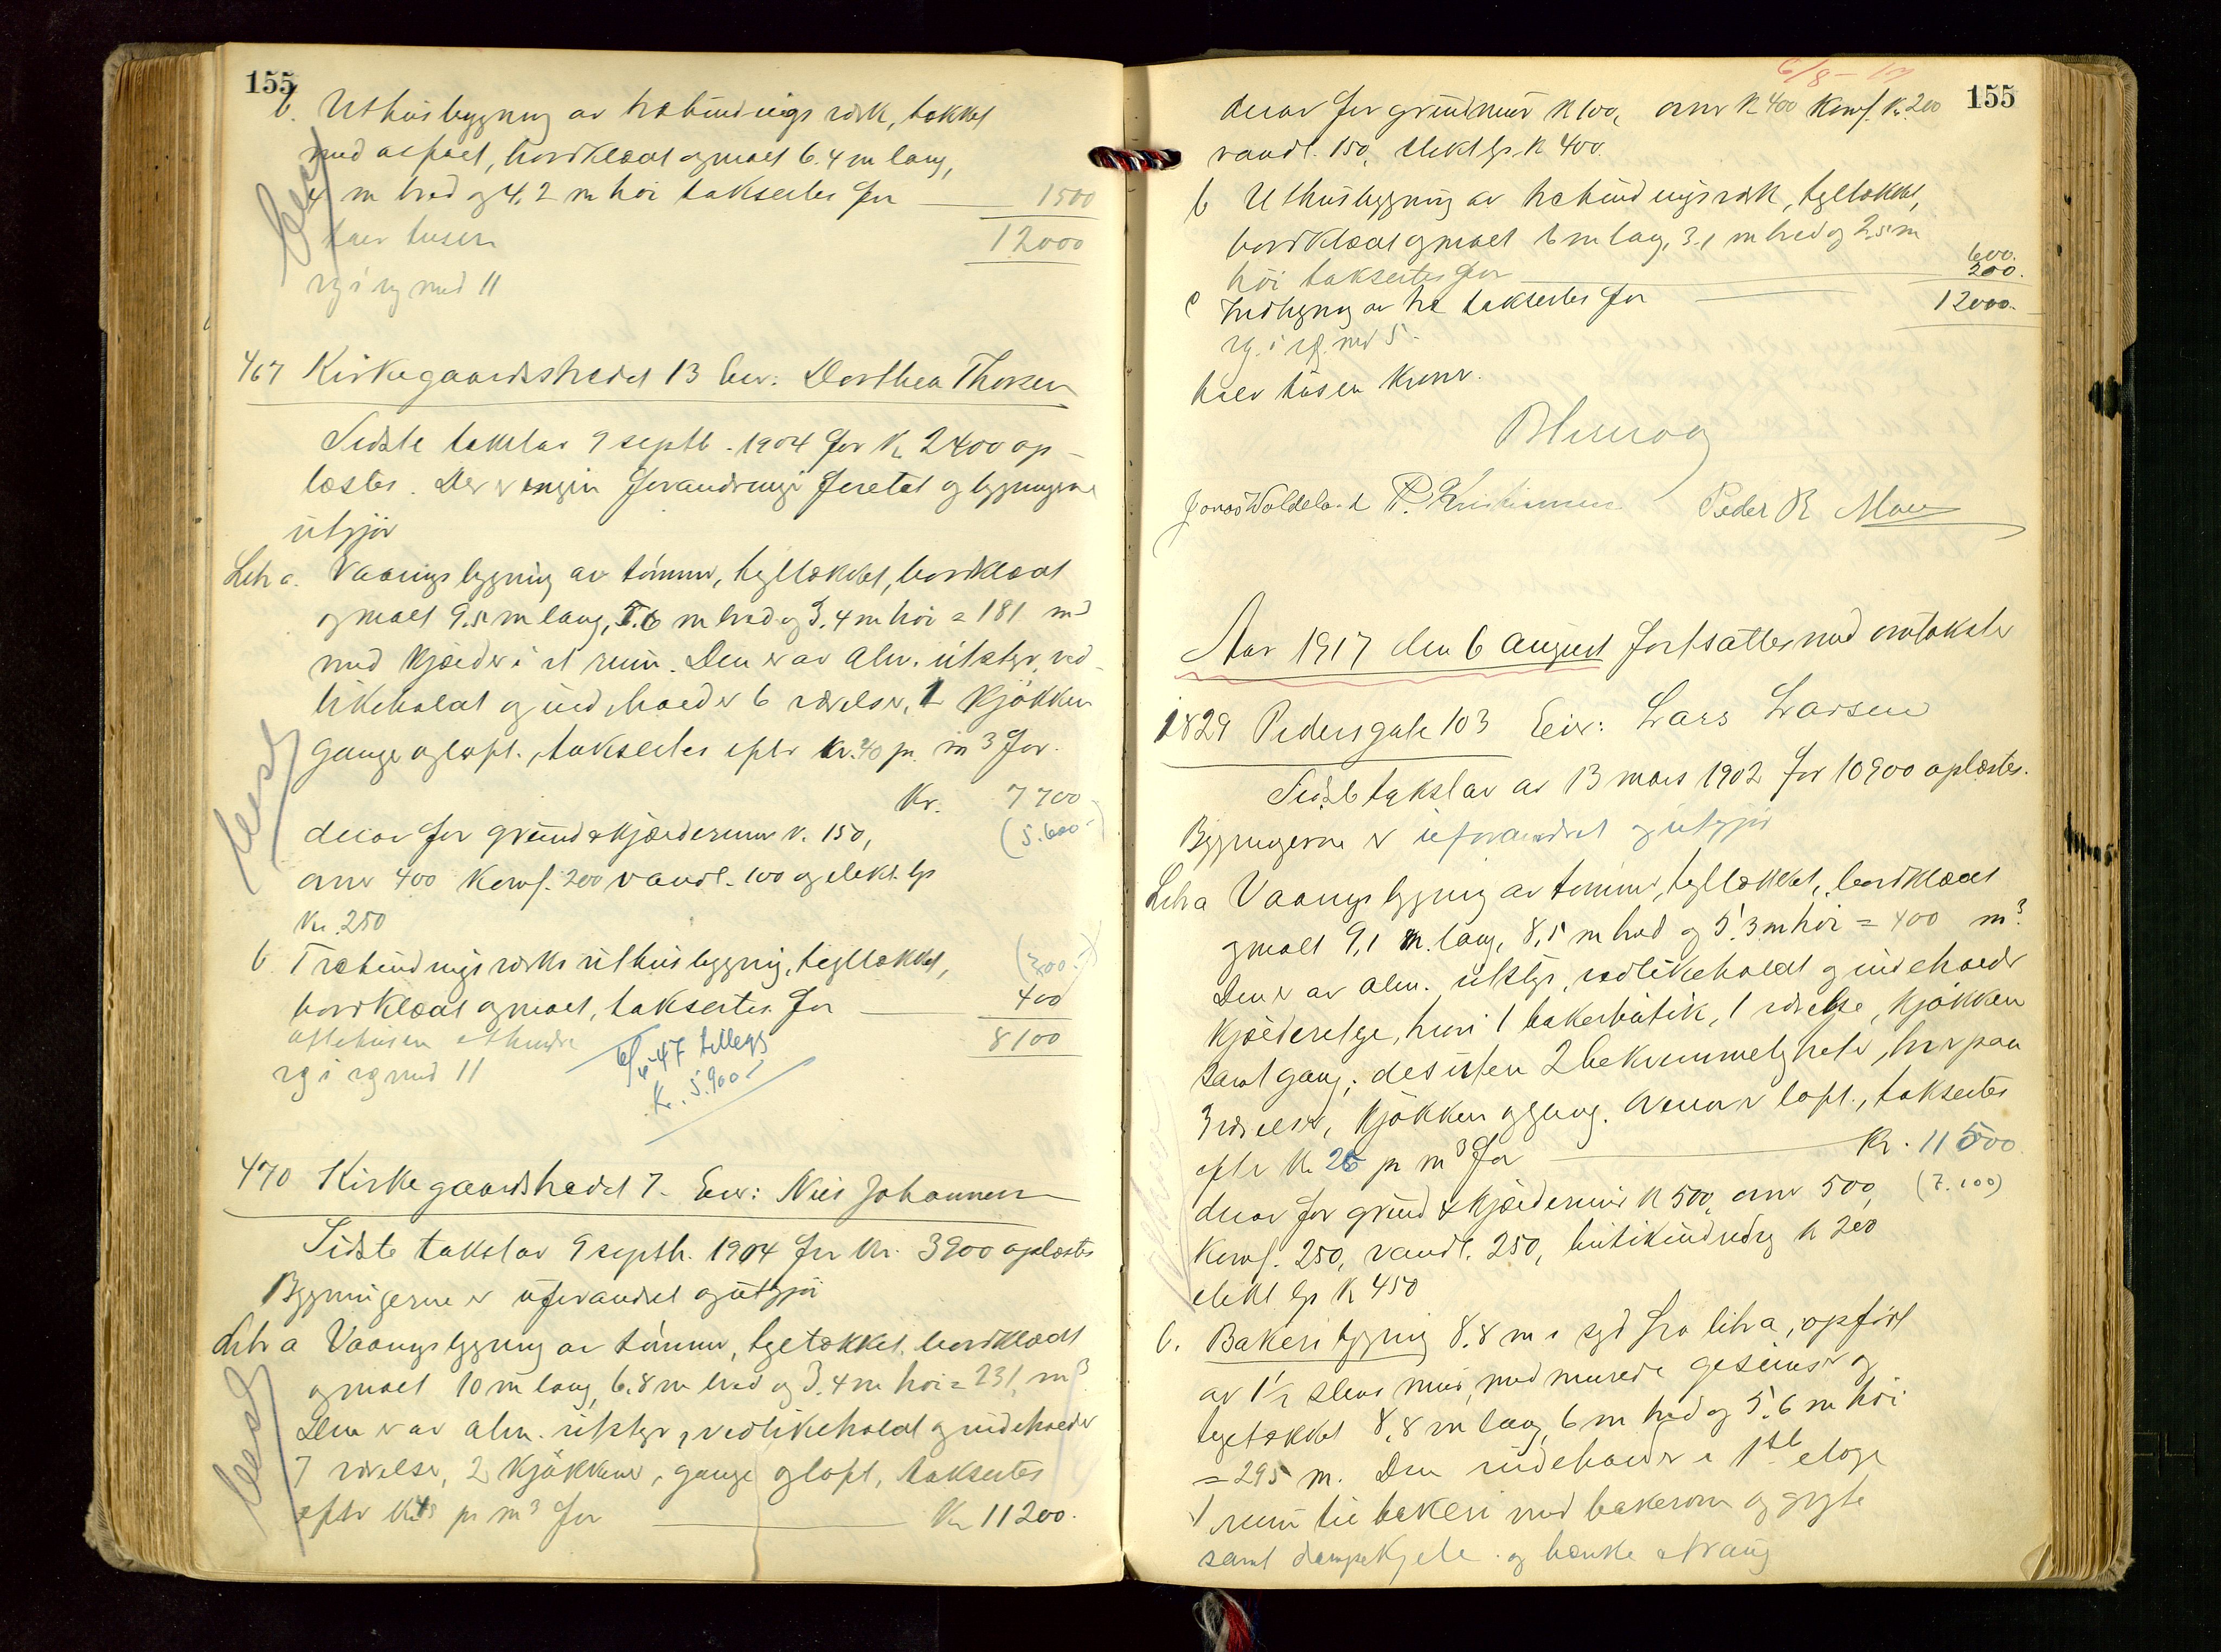 155
b. Uthusbygning av træbindingsverk, tækket
med asfalt, bordklædt og malt 6.4 m lang,
4 m bred og 4,2 m høi taksertes for 1500
tolv tusen 12000
rg i rg med 11
467 Kirkegaardsstrædet 13 Eier: Dorthea Thorsen
Sidste takst av 9 septb. 1904 for kr 2400 op-
læstes. Der er ingen forandringer foretat og bygningerne
utgjør
Litr a. Vaaningsbygning av tømmer, tegltækket, bordklædt
og malt 9.5 m lang, 5.6 m bred og 3.4 m høi = 181 m3
med kjælder i et rum. Den er av alm. utstyr, ved-
likeholdt og indeholder 6 værelser, 1 kjøkken
gange og loft, taksertes efter kr. 40 pr. m3 for
Kr. 7700
(5.600-)
derav for grund & kjældermur k. 150,
ovner 400 komf. 200 vandl. 100 og elekt. lys
kr. 250
b. Træbindingsverks uthusbygning, tegltækket,
(300.-)
bordklædt og malt, taksertes for 400
ottetusen ethundre 8100
rg i rg med 11
6/6-47 tillegg
Kr. 5.900.-
470 Kirkegaardstrædet 7. Eier: Nils Johannesen
Sidste takst av 9 septb. 1904 for kr. 3900 oplæstes
Bygningerne er uforandret og utgjør
Litr a Vaaningsbygning av tømmer, tegltækket, bordklædt
og malt 10 m lang, 6.8 m bred og 3.4 m høi = 231 m3
Den er av alm. utstyr, vedlikeholdt og indeholder
7 værelser, 2 kjøkkener, gange og loft, taksertes
efter kr 48 pr m3 for Kr 11200.
6/8-17
155
derav for grundmur k 100, ovner k 400 komf. k. 200
vandl. 150, elekt lys k 400.
b Uthusbygning av træbindingsverk, tegltækket,
bordklædt og malt 6 m lang, 3.1 m bred og 2.5 m
høi taksertes for 600.
c Indhegning av træ taksertes for 200.
12000.
rg. i rg. med 5.
tolv tusen kroner.
Jonas Waldeland P. Kristiansen Peder R Moen
Aar 1917 den 6 august fortsattes med omtakster
1829 Pedersgate 103 Eier: Lars Larsen
Sidste takst av av 13 mars 1902 for 10900 oplæstes.
Bygningerne er uforandret og utgjør
Litr a Vaaningsbygning av tømmer, tegltækket, bordklædt
og malt 9,1 m. lang, 8,5 m bred og 5.3 m høi = 400 m3.
Den er av alm. utstyr, vedlikeholdt og indeholder
kjælderetage, hvori 1 bakerbutik, 1 værelse, kjøkken
samt gang; desuten 2 bekvemmeligheter, hver paa
3 værelser, kjøkken og gang. Ovenover loft, taksertes
efter kr 26 pr m3 for Kr. 11500.
derav for grund & kjældermur k 500, ovner 500, (7.100)
komf. 250, vandl. 250, butikindredg k 200
elekt lys k 450
b. Bakeribygning 8.8 m i syd fra litr a, opført
av 1 1/2 stens mur, med murede gesimser og
tegltækket 8,8 m lang, 6 m bred og 5.6 m høi
= 295 m. Den indeholder i 1ste etage
1 rum til bakeri med bakerovn og gryte
samt dampkjele og bænke